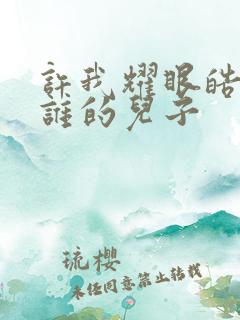 許我耀眼皓
誰的兒子
琉櫻
未经同意禁止转载